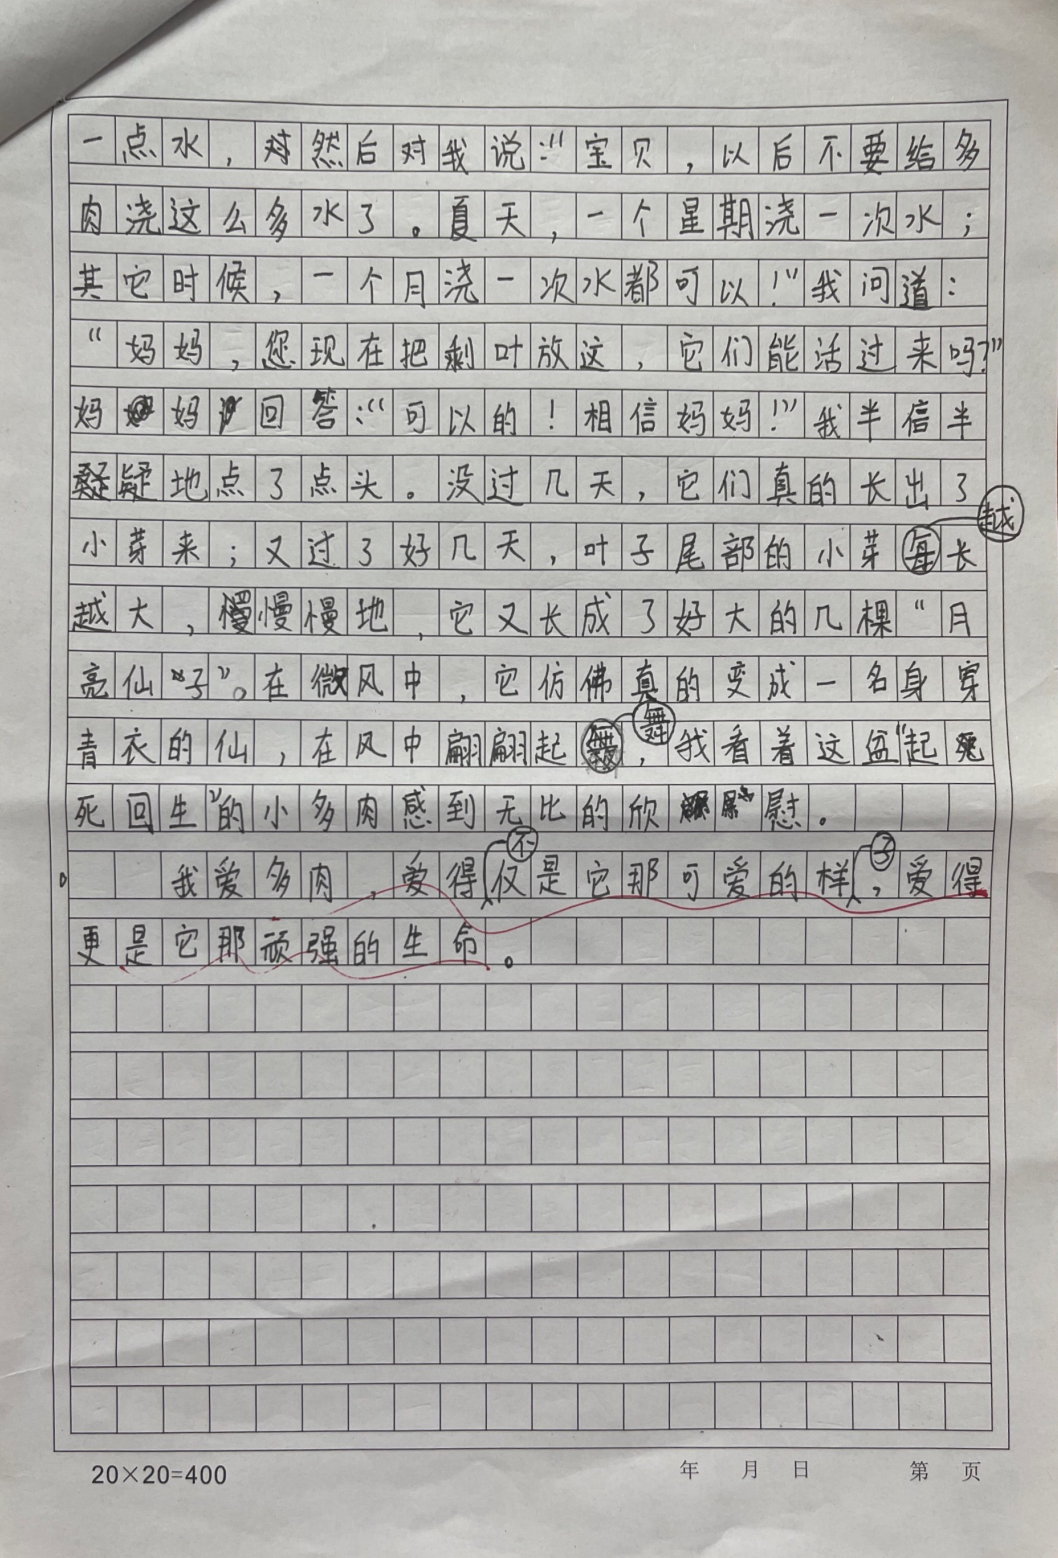 一点水，然后对我说：“宝贝，以后不要给多
肉浇这么多水了。夏天，一个星期浇一次水；
其它时候，一个月浇一次水都可以！”我问道：
“妈妈，您现在把剩叶放这，它们能活过来吗？”
妈妈回答：“可以的！相信妈妈！”我半信半
疑地点了点头。没过几天，它们真的长出了
小芽来；又过了好几天，叶子尾部的小芽越长
越大，慢慢地，它又长成了好大的几棵“月
亮仙子”。在微风中，它仿佛真的变成一名身穿
青衣的仙，在风中翩翩起舞，我看着这盆“起死
死回生”的小多肉感到无比的欣慰。
我爱多肉，爱得不仅是它那可爱的样子，爱得
更是它那顽强的生命。
20×20=400
年 月 日 第 页